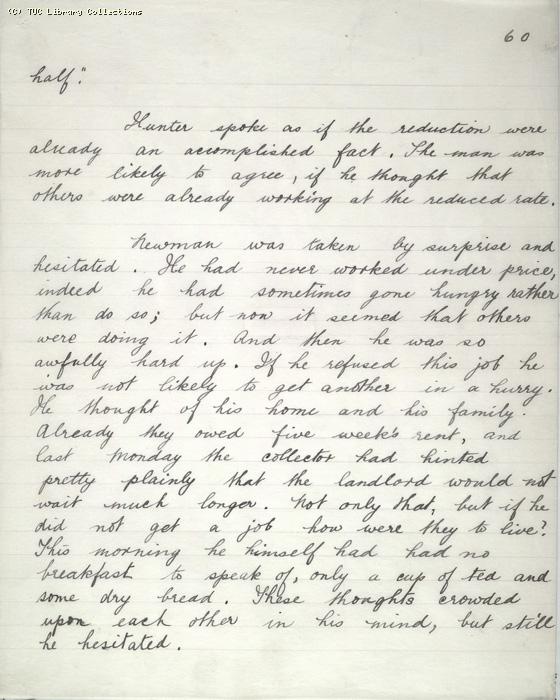 (C) TUC Library Collections
60
half."
Hunter spoke as if the reduction were
already an accomplished fact. The man was
more likely to agree, if he thought that
others were already working at the reduced rate.
Newman was taken by surprise and
hesitated. He had never worked under price,
indeed he had sometimes gone hungry rather
than do so; but now it seemed that others
were doing it. And then he was so
awfully hard up. If he refused this job he
was not likely to get another in a hurry.
He thought of his home and his family.
Already they owed five week's rent, and
last Monday the collector had hinted
pretty plainly that the landlord would not
wait much longer. Not only that, but if he
did not get a job how were they to live?
This morning he himself had had no
breakfast to speak of, only a cup of tea and
some dry bread. These thoughts crowded
upon each other in his mind, but still
he hesitated.